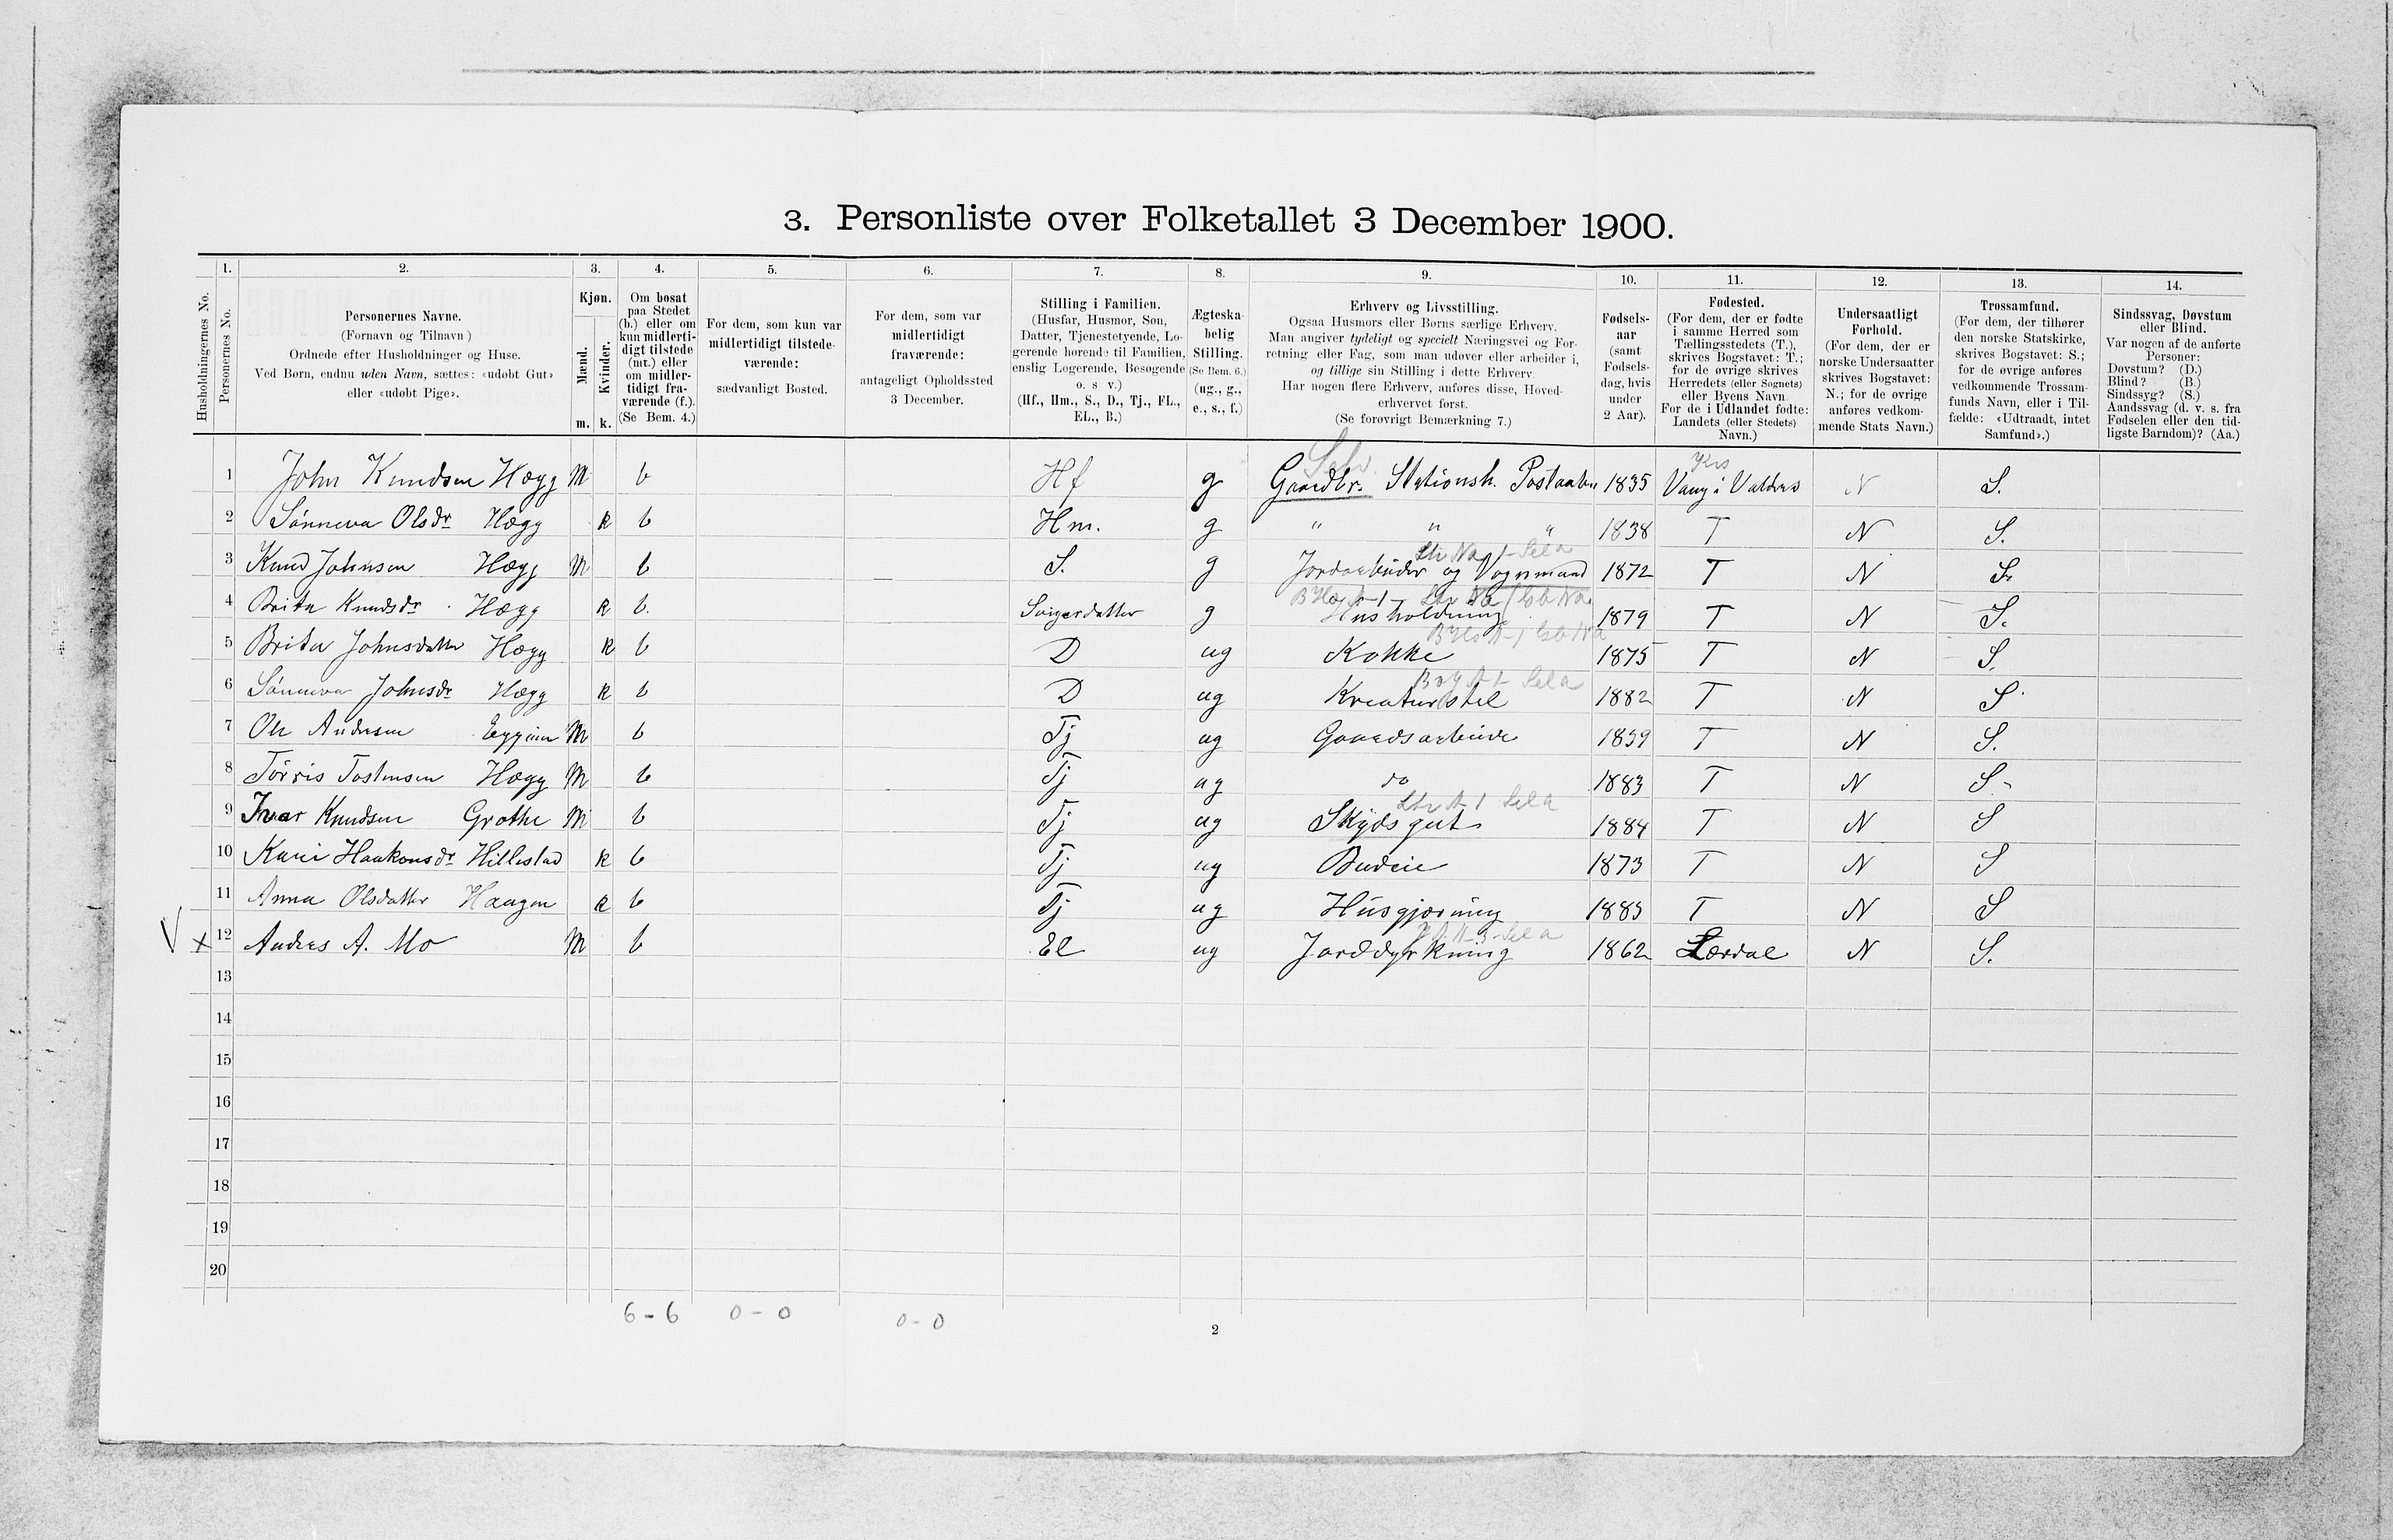 3. Personliste over Folketallet 3 December 1900.
1. 2. 3. 4. 5. 6. 7. 8. 9. 10. 11. 12. 13. 14.
Husholdningernes No.
Personernes No.
Personernes Navne.
(Fornavn og Tilnavn)
Ordnede efter Husholdninger og Huse.
Ved Børn, endnu uden Navn, sættes: «udøbt Gut»
eller «udøbt Pige».
Kjøn.
Mænd.
Kvinder.
m. k.
Om bosat
paa Stedet
(b.) eller om
kun midlerti-
digt tilstede
(mt.) eller
om midler-
tidigt fra-
værende (f.).
(Se Bem. 4.)
For dem, som kun var
midlertidigt tilstede-
værende:
sædvanligt Bosted.
For dem, som var
midlertidigt
fraværende:
antageligt Opholdssted
3 December.
Stilling i Familien.
(Husfar, Husmor, Søn,
Datter, Tjenestetyende, Lo-
gerende hørende til Familien,
enslig Logerende, Besøgende
o. s v.)
(Hf., Hm., S., D., Tj., FL.,
EL., B.)
Ægteska-
belig
Stilling.
(Se Bem. 6.)
(ug., g.,
e., s., f.)
Erhverv og Livsstilling.
Ogsaa Husmors eller Børns særlige Erhverv.
Man angiver tydeligt og specielt Næringsvei og For-
retning eller Fag, som man udøver eller arbeider i,
og tillige sin Stilling i dette Erhverv.
Har nogen flere Erhverv, anføres disse, Hoved-
erhvervet først.
(Se forøvrigt Bemærkning 7.)
Fødsels-
aar
(samt
Fødsels-
dag, hvis
under
2 Aar).
Fødested.
(For dem, der er fødte
i samme Herred som
Tællingsstedets (T.),
skrives Bogstavet: T.;
for de øvrige skrives
Herredets (eller Sognets)
eller Byens Navn.
For de i Udlandet fødte:
Landets (eller Stedets)
Navn.)
Undersaatligt
Forhold.
(For dem, der er
norske Undersaatter
skrives Bogstavet:
N.; for de øvrige
anføres vedkom-
mende Stats Navn.)
Trossamfund.
(For dem, der tilhører
den norske Statskirke,
skrives Bogstavet: S.;
for de øvrige anføres
vedkommende Trossam-
funds Navn, eller i Til-
fælde: «Udtraadt, intet
Samfund».)
Sindssvag, Døvstum
eller Blind.
Var nogen af de anførte
Personer:
Døvstum? (D.)
Blind? (B.)
Sindssyg? (S.)
Aandssvag (d. v. s. fra
Fødselen eller den tid-
ligste Barndom)? (Aa.)
Selv
1 John Knudsen Hægg M b Hf g Gaardbr. Stationsh. Postaabn 1835 Vang i Valdres N S.
2 Sönneva Olsdr Hægg k b Hm. g " " " 1838 T N S.
3 Knud Johnsen Hægg M b S. g Jordarbeider og Vognmand 1872 T N S.
4 Brita Knudsdr Hægg k b. Svigerdatter g Husholdning 1879 T N S.
5 Brita Johnsdatter Hægg k b D ug Kokke 1875 T N S.
6 Sönneva Johnsdr Hægg k b D ug Kreaturstel 1882 T N S
7 Ole Andersen Eggum M b Tj ug Gaardsarbeide 1859 T N S.
8 Törris Tostensen Hægg M b Tj ug do 1883 T N S
9 Ivar Knudsen Grothe M b Tj ug Skydsgut 1884 T N S
10 Kari Haakonsdr Hillestad k b Tj ug Budeie 1873 T N S
11 Anna Olsdatter Haugen k b Tj ug Husgjerning 1885 T N S
V x 12 Andres A. Mo M b El ug Jorddyrkning 1862 Lærdal N S.
13
14
15
16
17
18
19
20
6 - 6 0 - 0 0 - 0
2